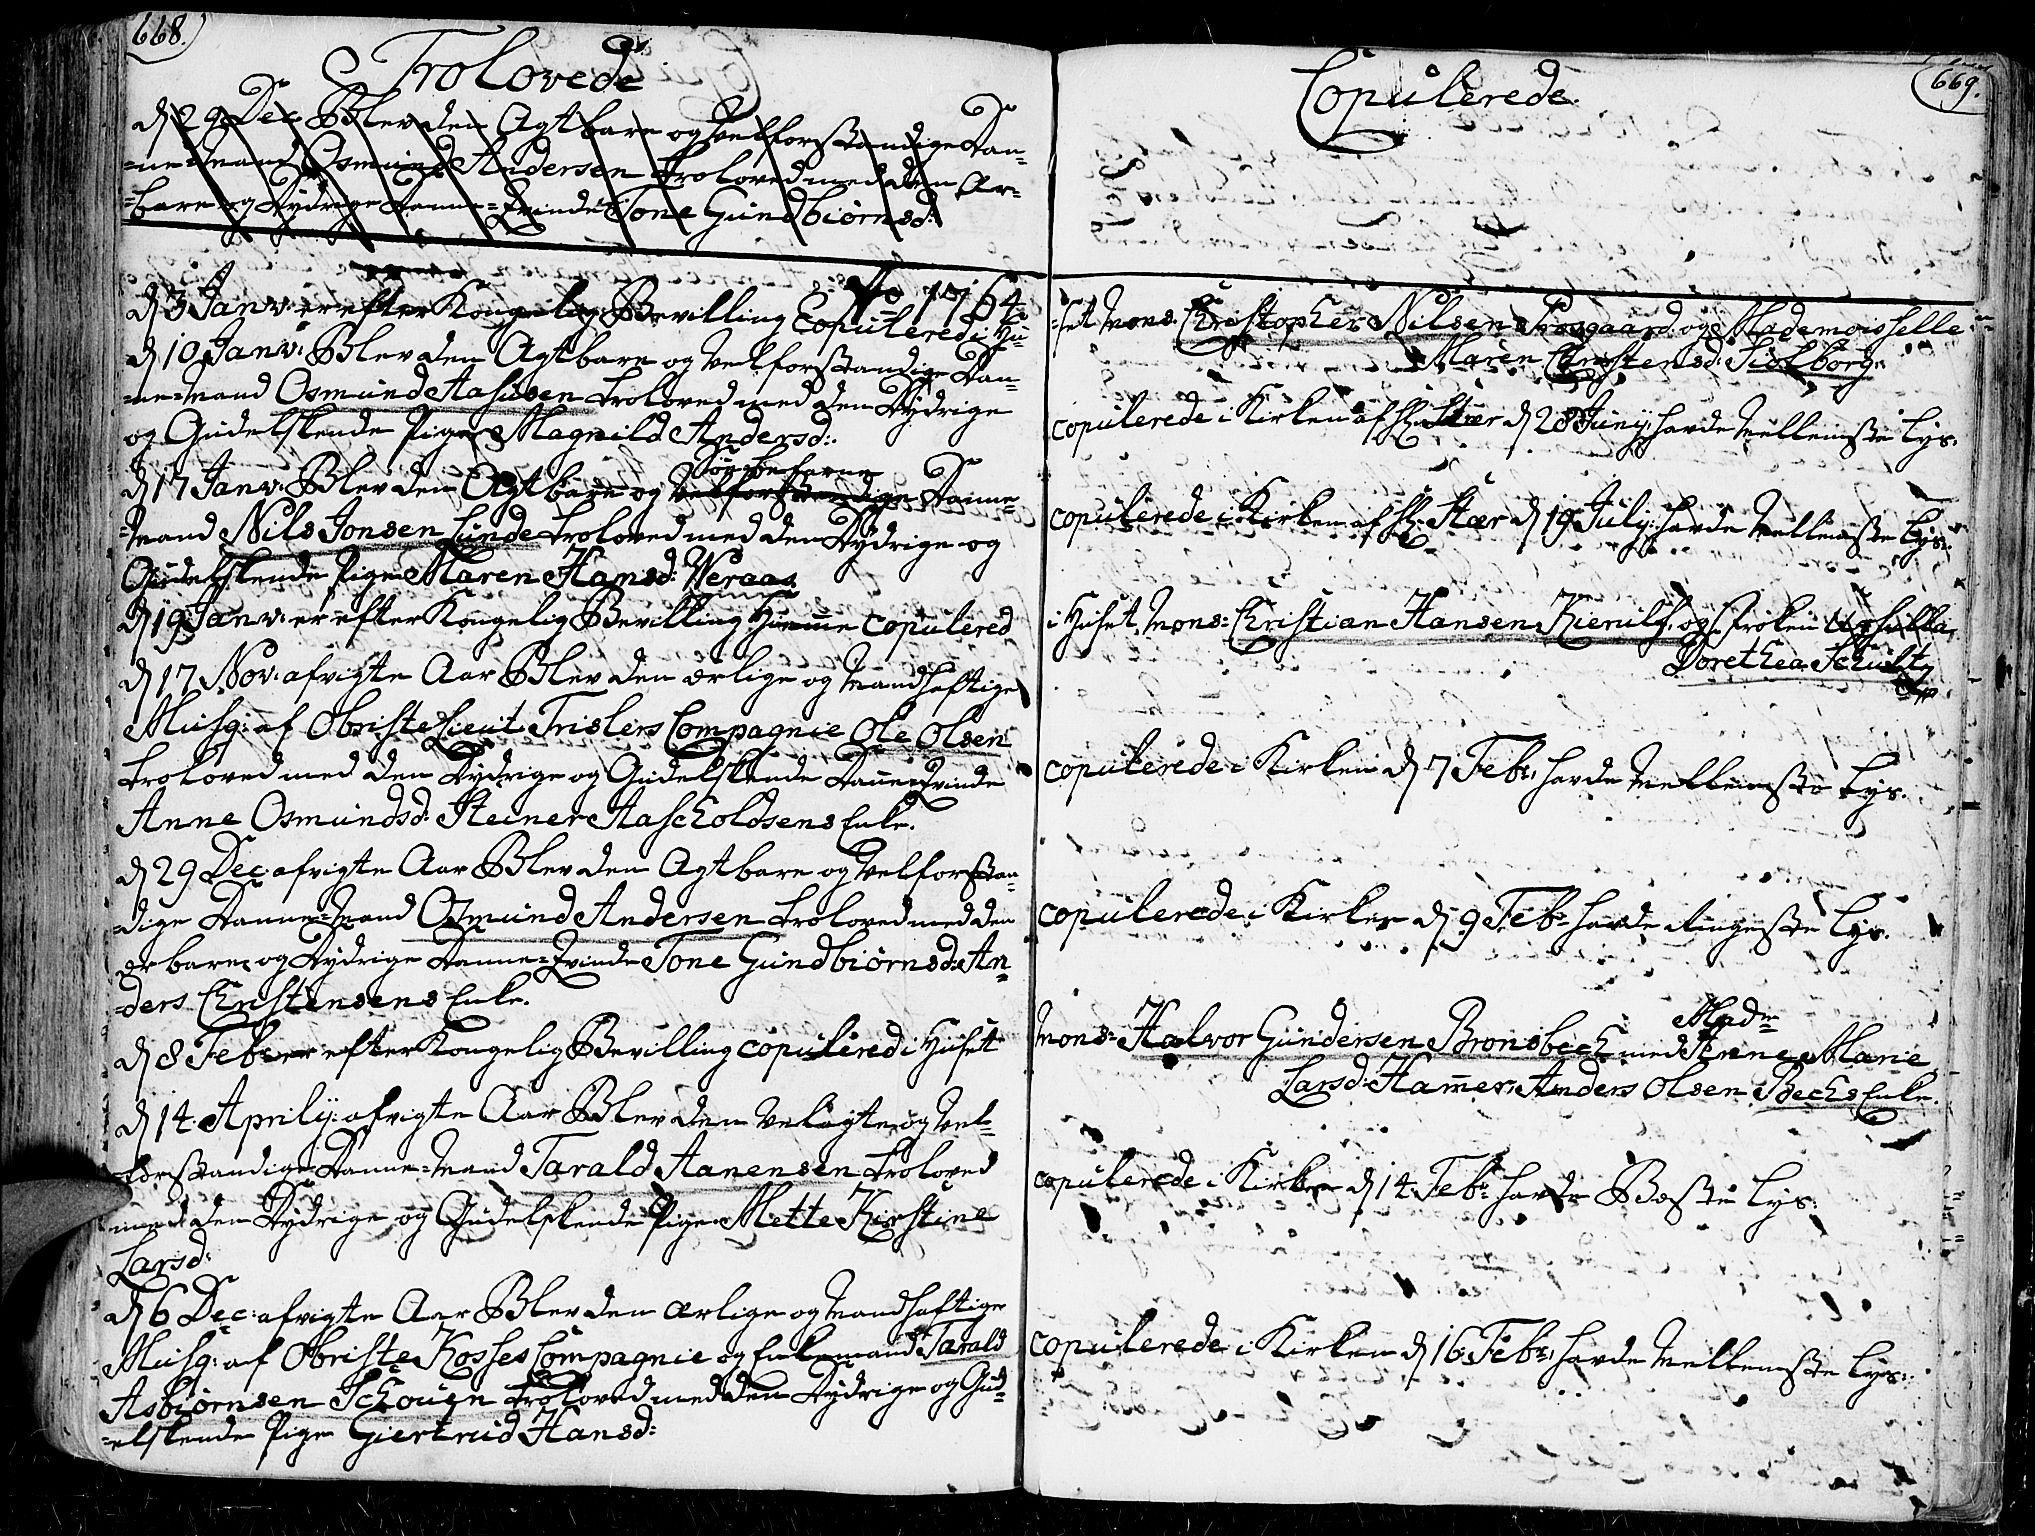 668.
Trolovede
d 29 Dec Blev den Agtbare og velforstandige Dan-
-ne-Mand Osmund Andersen troloved med den Ær-
-bare og Dydrige Danne-Qvinde Tone Gundbiørnsd:
Ao 1764.
d 3 Janv: er efter Kongelig Bevilling Copulered i Hu-
d 10 Janv: Blev den Agtbare og velforstandige Dan-
-ne-Mand Osmund Aasusen troloved med den Dydrige
og Gudelskende Pige Magnild Andersd:
d 17 Janv: Blev den Agtbare og velforstandige Søebefarne Danne-
-Mand Nils Jonsen Lunde troloved med den Dydrige og
Gudelskende Pige Maren Hansd: Weraas
d 19 Janv: er efter Kongelig Bevilling Hiemme Copulered
d 17 Nov: afvigte Aar Blev den ærlige og Mandhaftige
Musq: af Obriste Lieut: Trislers Compagnie Ole Olsen
troloved med den Dydrige og Gudelskende Danne-Qvinde
Anne Osmundsd: Steiner Aascholdsens Enke.
d 29 Dec: afvigte Aar Blev den Agtbare og velforstan-
-dige Danne-Mand Osmund Andersen troloved med den
ærbare og Dydrige Danne-Qvinde Tone Gundbiørnsd: An-
-ders Christensens Enke.
d 8 Febr: er efter Kongelig Bevilling copulered i Huset
d 14 Aprily: afvigte Aar Blev den velagte og vel-
-forstandige Danne-Mand Tarald Aanensen troloved
med den Dydrige og Gudelskende Pige Mette Kirstine
Larsd:
d 6 Dec: afvigte Aar Blev den ærlige og Mandhaftige
Musq: af Obriste Kosses Compagnie og Enkemand Tarald
Asbiørnsen Schouen troloved med den Dydrige og Gud-
-elskende Pige Giertrud Hansd:
669.
Copulerede
-set Mons: Christopher Nilsen Proogaard og Mademoisselle
Maren Christensd: Fiolborg.
copulerede i Kirken af Hr: Stær d 28 Juny: havde Mellemste Lys.
copulerede i Kirken af Hr: Stær d 19 July: havde Mellemste Lys.
i Huset Mons: Christian Hansen Kienily. og Frøken
Dorethea Schultz
copulerede i Kirken d 7 Febr: havde Mellemste Lys.
copulerede i Kirken d 9 Febr: havde Ringeste Lys.
Mons: Halvor Gundersen Bronsbech med Madme Anne Marie
Larsd: Hamer Anders Olsen Bechs Enke.
copulerede i Kirken d 14 Febr: havde Bæste Lys:
copulerede i Kirken d 16 Febr: havde Mellemste Lys: